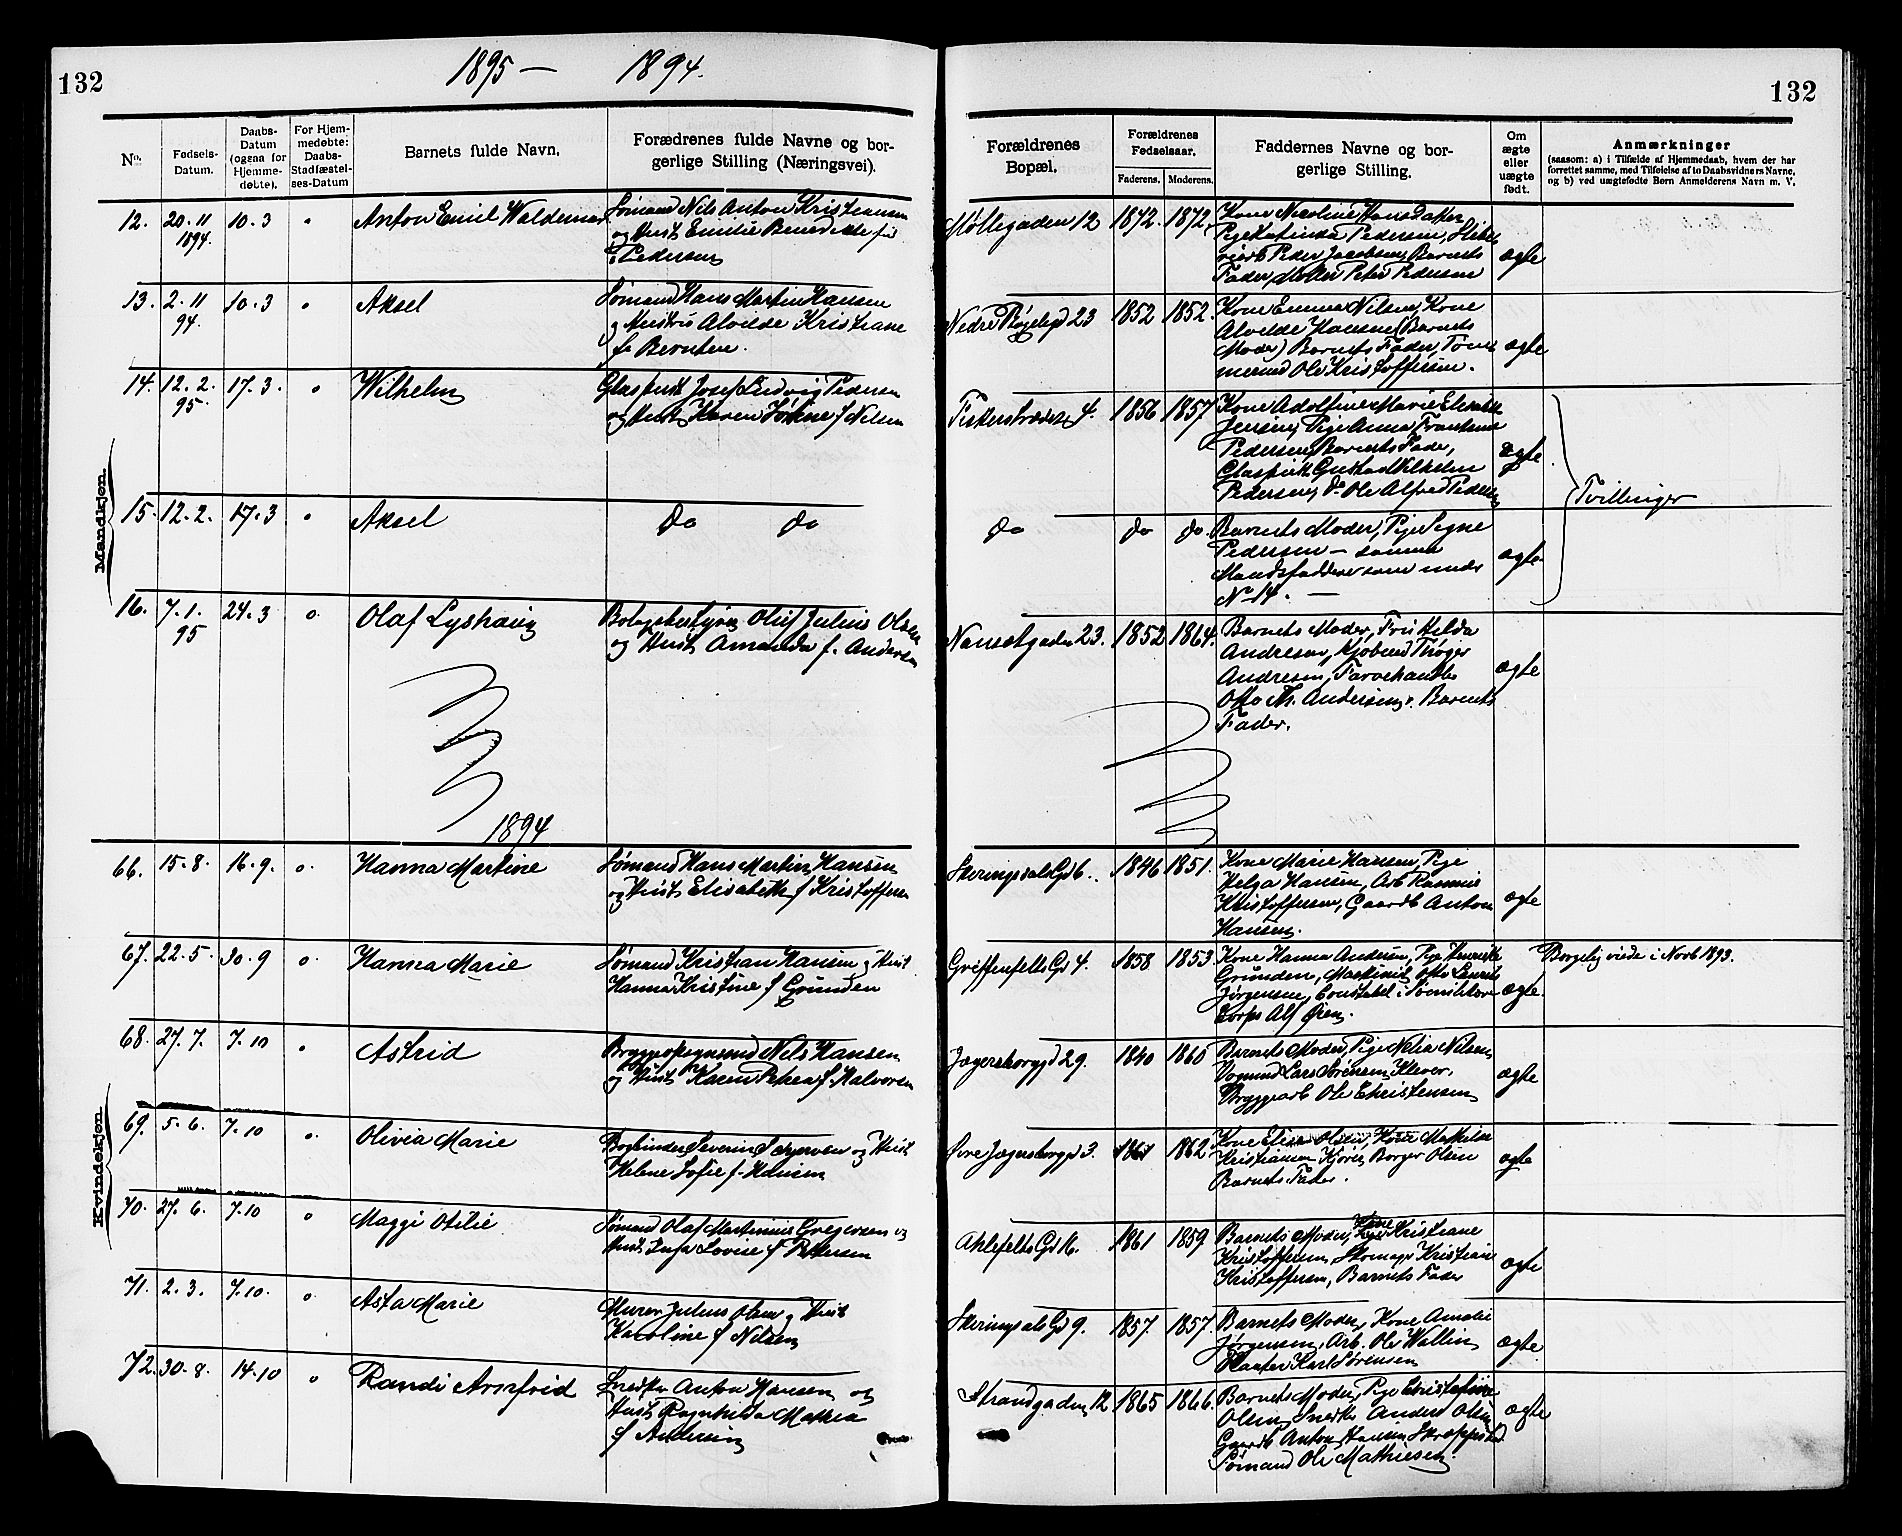 132
1895 — 1894.
132
No.
Fødsels-
Datum.
Daabs-
Datum
(ogsaa for
Hjemme-
døbte).
For Hjem-
medøbte:
Daabs-
Stadfæstel-
ses-Datum
Barnets fulde Navn.
Forædrenes fulde Navne og bor-
gerlige Stilling (Næringsvei).
Forældrenes
Bopæl.
Forældrenes
Fødselsaar.
Faderens. Moderens.
Faddernes Navne og bor-
gerlige Stilling.
Om
ægte
eller
uægte
født.
Anmærkninger
(saasom: a) i Tilfælde af Hjemmedaab, hvem der har
forrettet samme, med Tilføielse af to Daabsvidners Navne,
og b) ved uægtefødte Børn Anmelderens Navn m. V.
Mandkjøn.
12. 20.11 1894. 10.3 Anton Emil Waldemar
Sømand Nils Anton Kristiansen
og Hust Emilie Benedikte
Pedersen
Møllegaden 12 1872. 1872.
Kone Nicoline Hansdatter
Pige Katinka Pedersen,
Peder Jacobsen, Barnets
Fader, Peter Pedersen
ægte
13. 2.11 94. 10.3 Aksel
Sømand Hans Martin Hansen
og Hustru Alvilde Kristiane
f. Berntsen.
Nedre 23 1852 1852.
Kone Emma Nilsen, Kone
Alvilde Hansen (Barnets
Moder) Barnets Fader, Tøm-
mermd Ole Kristoffersen.
ægte
14. 12.2. 95. 17.3. Wilhelm
Glaspust Josef Ludvig Pedersen
og Hust Karen f Nilsen
4. 1856 1857
Kone Adolfine Marie
Jensen, Pige Anna
Pedersen, Barnets Fader,
Glaspust Gustav Wilhelm
Pedersen, Do Ole Alfred Pedersen
ægte
Tvillinger
15. 12.2. 17.3 Aksel
do do
do do do.
Barnets Moder, Pige Signe
Pedersen — samme
Mandsfaddere som under
No 14. —
ægte
16. 7.1. 95 24.3 Olaf Lyshaug
Oluf Julius Olsen
og Hust Amanda f. Andersen
Nansetgaden 23. 1852 1864.
Barnets Moder, Fru Hilda
Andresen, Kjøbmd Trøger
Andresen, Farvehandler
Otto M. Andersen, Barnets
Fader.
ægte
1894
Kvindekjøn.
66. 15.8. 16.9. Hanna Martine
Sømand Hans Martin Hansen
og Hust Elisabeth f Kristoffersen
Skiringssals Gd 6. 1846 1851.
Kone Marie Hansen, Pige
Helga Hansen, Arb Rasmus
Kristoffersen, Gaardb Anton
Hansen.
ægte
67. 22.5. 30.9 Hanna Marie
Sømand Kristian Hansen og Hust
Hanna Kristine f Grunden
Griffenfelts Gd 4. 1858 1853.
Kone Hanna Andersen, Pige Henrikke
Grunden, Maskinist Otto Laurits
Jørgensen, Constabel i
Corps Alf Øren.
ægte.
Borgelig viede i Novb 1893.
68. 27.7. 7.10 Astrid
Nils Hansen
og Hust Karen Petrea f. Halvorsen
Jægersborggd 29. 1840 1860
Barnets Moder, Pige Nilia Nilsen,
Vognmd Lars Sørensen Klever,
Bryggearb Ole Christensen
ægte
69. 5.6. 7.10 Olivia Marie
Bogbinder Severin og Hust
Helene Sofie f. Hansen
Øvre Jægersborggd 3. 1861 1862.
Kone Elise Olsen, Kone Mathilde
Kristiansen Borger Olsen
Barnets Fader.
ægte
70. 27.6. 7.10 Maggi Otilie
Sømand Olaf Martinius Gregersen og
Hust Inga Lovise f Pettersen
Ahlefelts Gd 16. 1861 1859
Barnets Moder, Kone Kristiane
Kristoffersen, Skomager Kristian
Kristoffersen, Barnets Fader
ægte
71. 2.3. 7.10. Asta Marie
Murer Julius Olsen og Hust
Karoline f Nilsen
Skiringsals Gd 9. 1857. 1857.
Barnets Moder, Kone Amalie
Jørgensen, Arb. Ole Wallin
Karl Sørensen
ægte
72. 30.8. 14.10 Randi Arnfrid
Snedker Anton Hansen og
Hust Ragnhilda Mathea
f Andersen
Strandgaden 12 1865 1866.
Barnets Moder, Pige Christofine
Olsen, Snedker Anders Olsen
Gaardb Anton Hansen
Sømand Ole Mathiesen
ægte